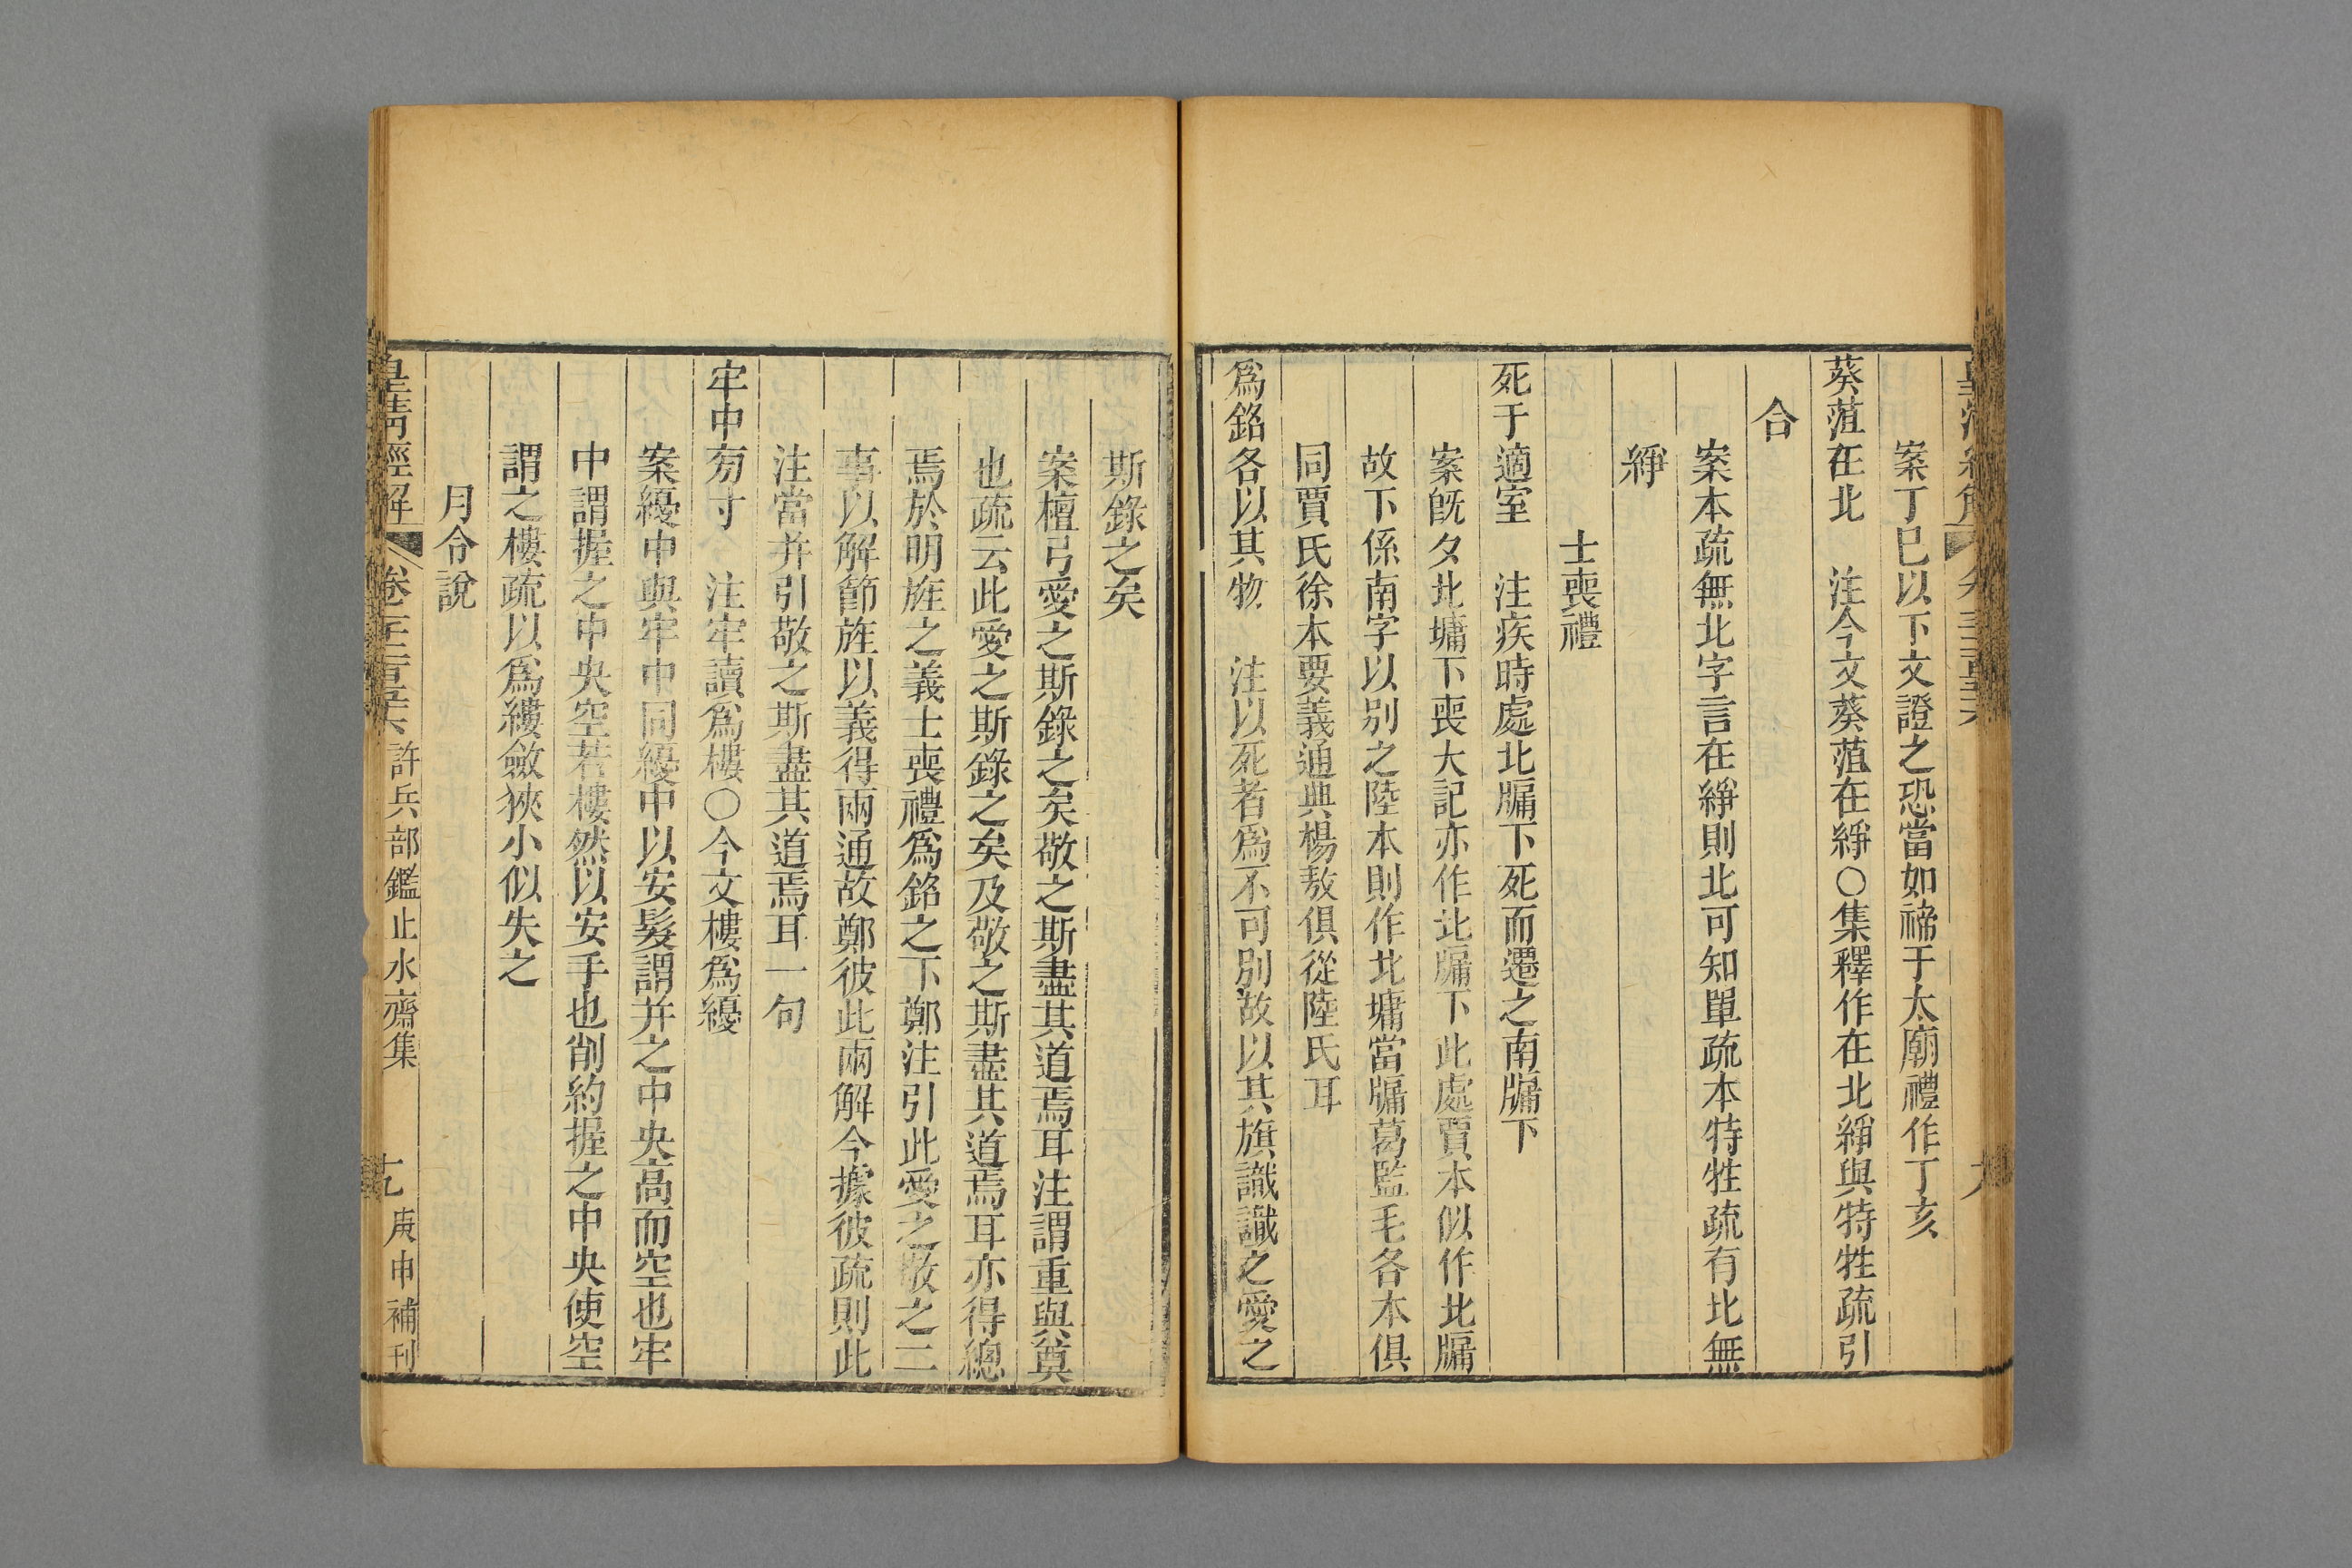 案丁巳以下文證之恐當如禘于太廟禮作丁亥
葵菹在北　注今文葵菹在綪○集釋作在北綪與特牲疏引
合
案本疏無北字言在綪則北可知單疏本特牲疏有北無
綪
士喪禮
死于適室　注疾時處北牖下死而遷之南牖下
案旣夕北墉下喪大記亦作北牖下此處賈本似作北牖
故下係南字以別之陸本則作北墉當牖葛監毛各本俱
同賈氏徐本要義通典楊敖俱從陸氏耳
爲銘各以其物　注以死者爲不可別故以其旗識識之愛之
斯錄之矣
案檀弓愛之斯錄之矣敬之斯盡其道焉耳注謂重與奠
也疏云此愛之斯錄之矣及敬之斯盡其道焉耳亦得總
焉於明旌之義士喪禮爲銘之下鄭注引此愛之敬之二
事以解節旌以義得兩通故鄭彼此兩解今據彼疏則此
注當并引敬之斯盡其道焉耳一句
牢中旁寸　注牢讀爲樓○今文樓爲纋
案纋中與牢中同纋中以安髮謂并之中央高而空也牢
中謂握之中央空若樓然以安手也削約握之中央使空
謂之樓疏以爲縷斂狹小似失之
月令說
皇淸經解　卷三百三十六　許兵部鑑止水齋集　九　庚申補刊